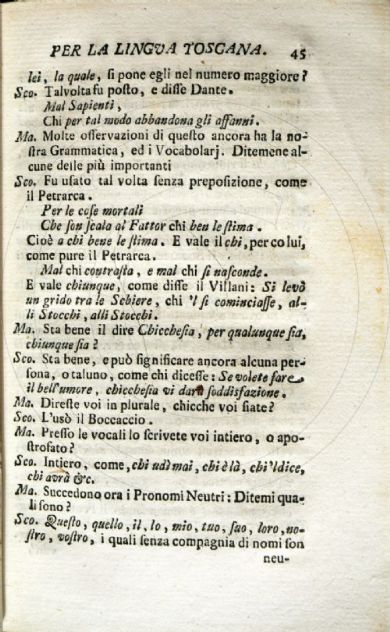 PER LA LINGVA TOSCANA. 45
lei, la quale, ſi pone egli nel numero maggiore?
Sco. Talvolta fu poſto, e diſſe Dante.
Mal Sapienti,
Chi per tal modo abbandona gli affanni.
Ma. Molte oſſervazioni di queſto ancora ha la no-
ſtra Grammatica, ed i Vocabolarj. Ditemene al-
cune delle più importanti
Sco. Fu uſato tal volta ſenza prepoſizione, come
il Petrarca.
Per le coſe mortali
Che ſon ſcala al Fattor chi ben le ſtima.
Cioè a chi bene le ſtima. E vale il chi, per colui,
come pure il Petrarca.
Mal chi contraſta, e mal chi ſi naſconde.
E vale chiunque, come diſſe il Villani: Si levò
un grido tra le Schiere, chi 'l ſi cominciaſſe, al-
li Stocchi, alli Stocchi.
Ma. Sta bene il dire Chiccheſia, per qualunque ſia,
chiunque ſia?
Sco. Sta bene, e può ſignificare ancora alcuna per-
ſona, o taluno, come chi diceſſe: Se volete fare
il bell'umore, chiccheſia vi darà ſoddisfazione.
Ma. Direſte voi in plurale, chicche voi ſiate?
Sco. L'usò il Boccaccio.
Ma. Preſſo le vocali lo ſcrivete voi intiero, o apo-
ſtrofato?
Sco. Intiero, come, chi udì mai, chi è là, chi 'l dice,
chi avrà &c.
Ma. Succedono ora i Pronomi Neutri: Ditemi qua-
li ſono?
Sco. Queſto, quello, il, lo, mio, tuo, ſuo, loro, no-
ſtro, voſtro, i quali ſenza compagnia di nomi ſon
neu-